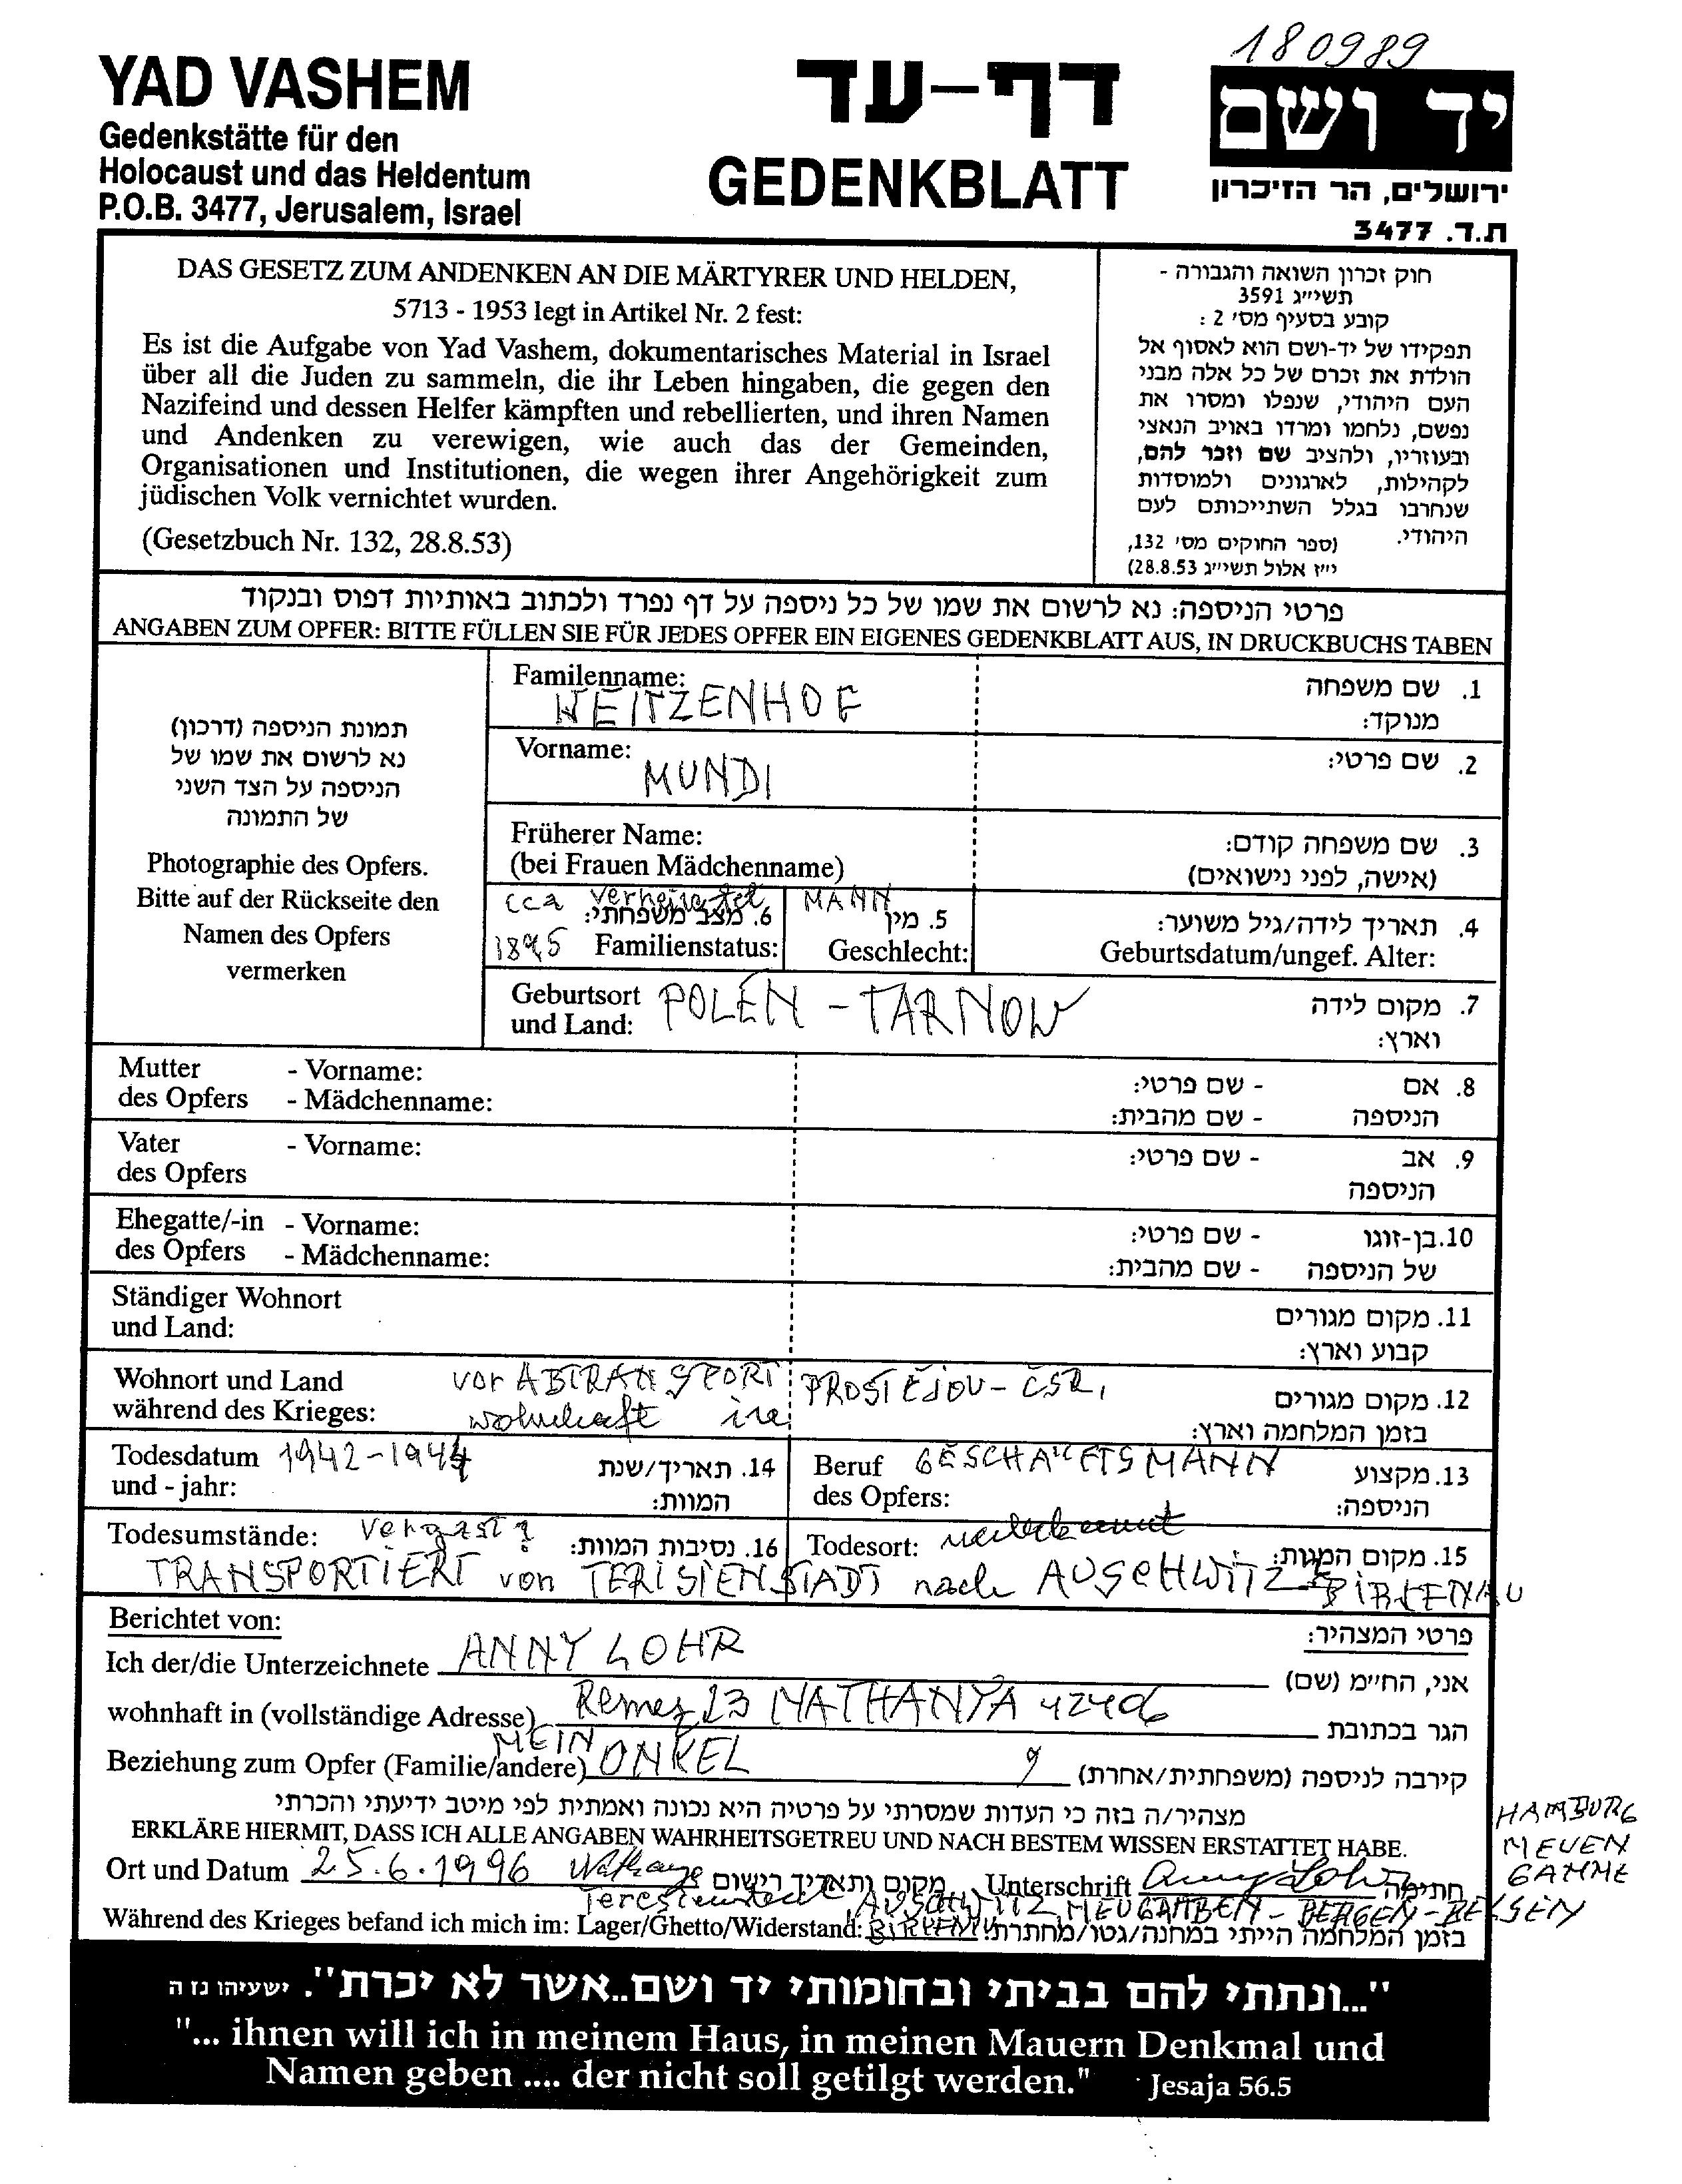 180989
YAD VASHEM
Gedenkstätte für den
Holocaust und das Heldentum
P.O.B. 3477, Jerusalem, Israel
דף-עד
GEDENKBLATT
יד ושם
ירושלים, הר הזיכרון
ת.ד. 3477
DAS GESETZ ZUM ANDENKEN AN DIE MÄRTYRER UND HELDEN,
5713 - 1953 legt in Artikel Nr. 2 fest:
Es ist die Aufgabe von Yad Vashem, dokumentarisches Material in Israel
über all die Juden zu sammeln, die ihr Leben hingaben, die gegen den
Nazifeind und dessen Helfer kämpften und rebellierten, und ihren Namen
und Andenken zu verewigen, wie auch das der Gemeinden,
Organisationen und Institutionen, die wegen ihrer Angehörigkeit zum
jüdischen Volk vernichtet wurden.
(Gesetzbuch Nr. 132, 28.8.53)
חוק זכרון השואה והגבורה -
תשי״ג 3591
קובע בסעיף מס׳ 2 :
תפקידו של יד-ושם הוא לאסוף אל
הולדת את זכרם של כל אלה מבני
העם היהודי, שנפלו ומסרו את
נפשם, נלחמו ומרדו באויב הנאצי
ובעוזריו, ולהציב שם וזכר להם,
לקהילות, לארגונים ולמוסדות
שנחרבו בגלל השתייכותם לעם
היהודי.
(ספר החוקים מס׳ 132,
י״ז אלול תשי״ג 28.8.53)
פרטי הניספה: נא לרשום את שמו של כל ניספה על דף נפרד ולכתוב באותיות דפוס ובנקוד
ANGABEN ZUM OPFER: BITTE FÜLLEN SIE FÜR JEDES OPFER EIN EIGENES GEDENKBLATT AUS, IN DRUCKBUCHS TABEN
תמונת הניספה (דרכון)
נא לרשום את שמו של
הניספה על הצד השני
של התמונה
Photographie des Opfers.
Bitte auf der Rückseite den
Namen des Opfers
vermerken
Familenname: WEITZENHOF
1. שם משפחה
מנוקד:
Vorname: MUNDI
2. שם פרטי:
Früherer Name:
(bei Frauen Mädchenname)
3. שם משפחה קודם:
(אישה, לפני נישואים)
cca verheiratet MANN
1895
6. מצב משפחתי:
Familienstatus:
5. מין
Geschlecht:
4. תאריך לידה/גיל משוער:
Geburtsdatum/ungef. Alter:
Geburtsort
und Land: POLEN - TARNOW
7. מקום לידה
וארץ:
Mutter - Vorname:
des Opfers - Mädchenname:
8. אם - שם פרטי:
הניספה - שם מהבית:
Vater - Vorname:
des Opfers
9. אב - שם פרטי:
הניספה
Ehegatte/-in - Vorname:
des Opfers - Mädchenname:
10. בן-זוגו - שם פרטי:
של הניספה - שם מהבית:
Ständiger Wohnort
und Land:
11. מקום מגורים
קבוע וארץ:
Wohnort und Land vor ABTRANSPORT PROSTĚJOV - ČSR,
während des Krieges: wohnhaft in
12. מקום מגורים
בזמן המלחמה וארץ:
Todesdatum 1942-1944
und - jahr:
14. תאריך/שנת
המוות:
Beruf GESCHAEFTSMANN
des Opfers:
13. מקצוע
הניספה:
Todesumstände: vergast ?
16. נסיבות המוות:
Todesort:
15. מקום המוות:
TRANSPORTIERT von TERISIENSTADT nach AUSCHWITZ BIRKENAU
Berichtet von:
פרטי המצהיר:
Ich der/die Unterzeichnete ANNY LOHR אני, החי״מ (שם)
wohnhaft in (vollständige Adresse) Remez 23 NATHANYA 42406 הגר בכתובת
Beziehung zum Opfer (Familie/andere) MEIN ONKEL קירבה לניספה (משפחתית/אחרת)
מצהיר/ה בזה כי העדות שמסרתי על פרטיה היא נכונה ואמתית לפי מיטב ידיעתי והכרתי
ERKLÄRE HIERMIT, DASS ICH ALLE ANGABEN WAHRHEITSGETREU UND NACH BESTEM WISSEN ERSTATTET HABE.
Ort und Datum 25.6.1996 מקום ותאריך רישום Unterschrift Anny Lohr חתימה
HAMBURG
NEUEN
GAMME
Teresienstadt AUSCHWITZ NEUGAMBEN - BERGEN - BELSEN
Während des Krieges befand ich mich im: Lager/Ghetto/Widerstand: BIRKENAU בזמן המלחמה הייתי במחנה/גטו/מחתרת:
"...ונתתי להם בביתי ובחומותי יד ושם..אשר לא יכרת". ישעיהו נז ה
"... ihnen will ich in meinem Haus, in meinen Mauern Denkmal und
Namen geben .... der nicht soll getilgt werden." Jesaja 56.5